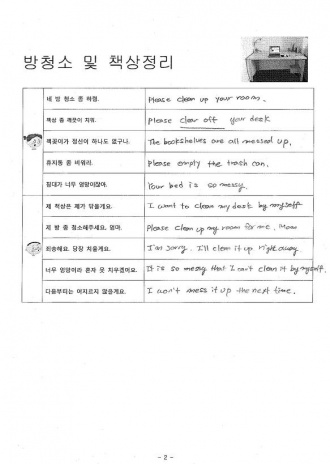 방청소 및 책상정리
네 방 청소 좀 하렴.
Please clean up your room.
책상 좀 깨끗이 치워.
Please clear off your desk
책꽂이가 정신이 하나도 없구나.
The bookshelves are all messed up.
휴지통 좀 비워라.
Please empty the trash can.
침대가 너무 엉망이잖아.
Your bed is so messy.
제 책상은 제가 닦을게요.
I want to clean my desk by myself
제 방 좀 청소해주세요. 엄마.
Please clean up my room for me, Mom
죄송해요. 당장 치울게요.
I'm sorry. I'll clean it up right away
너무 엉망이라 혼자 못 치우겠어요.
It is so messy that I can't clean it by myself.
다음부터는 어지르지 않을게요.
I won't mess it up the next time.
- 2 -